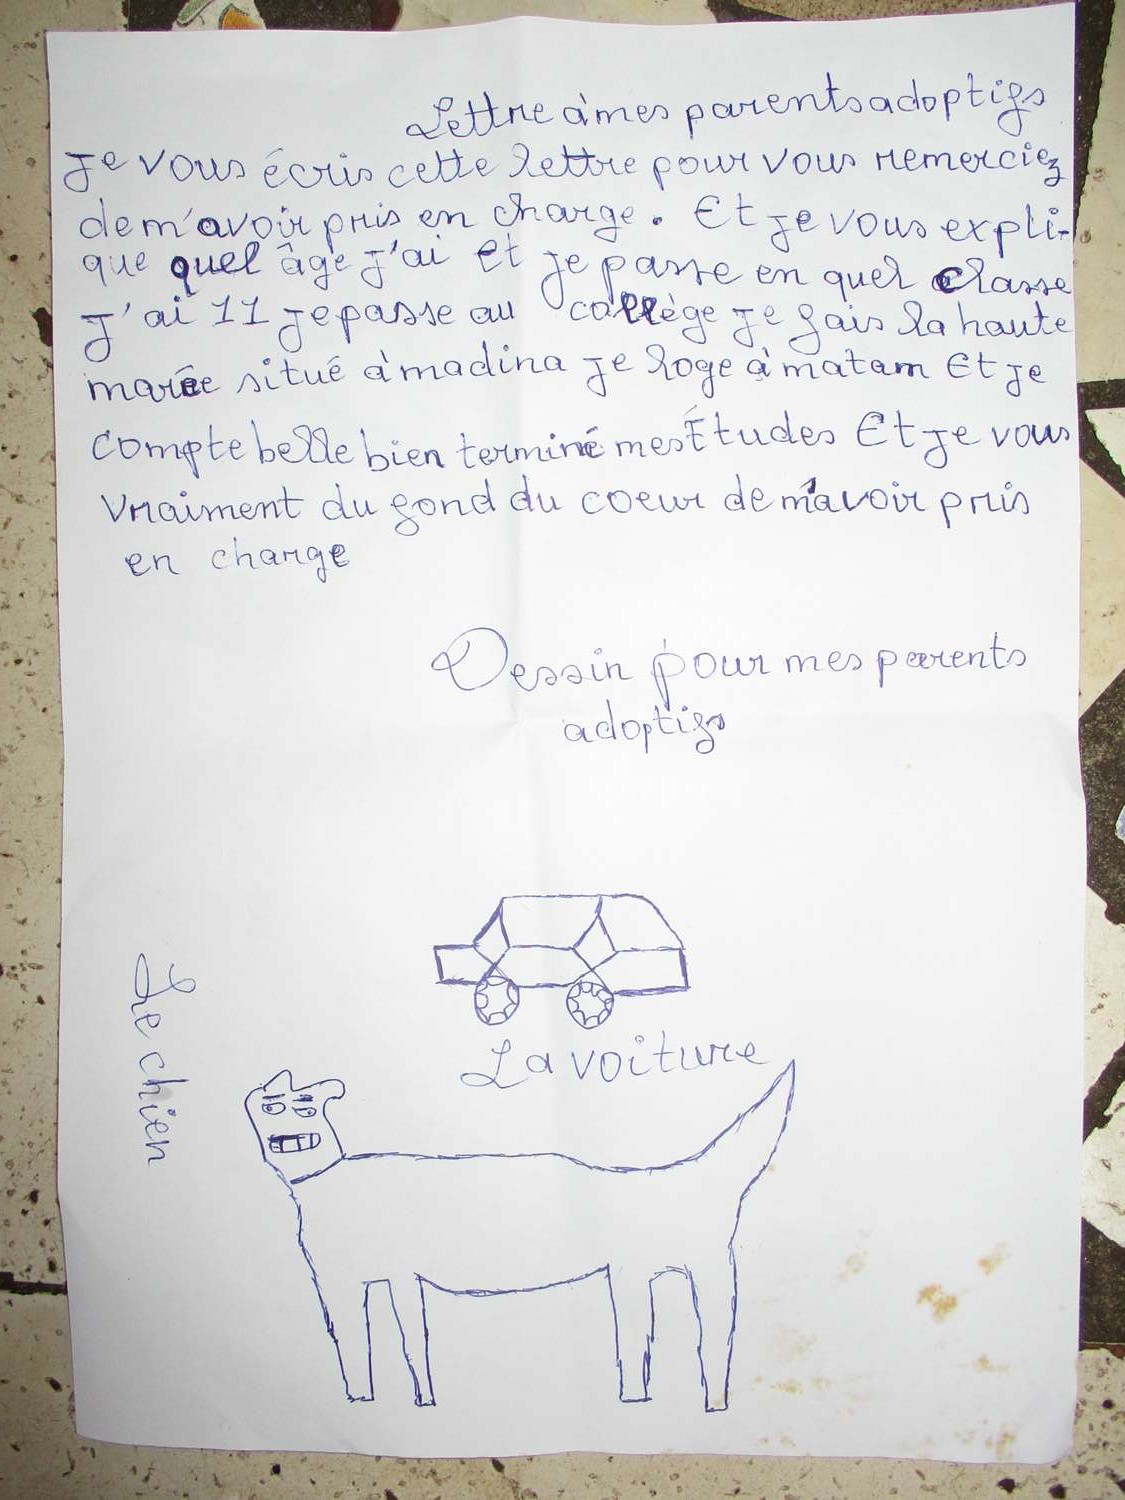 Lettre à mes parents adoptifs
Je vous écris cette lettre pour vous remerciez
de m'avoir pris en charge. Et je vous expli-
que quel âge j'ai et je passe en quel classe
j'ai 11 je passe au collège je fais la haute
marée situé à madina je loge à matam Et je
compte belle bien terminé mes Études Et je vous
vraiment du fond du coeur de m'avoir pris
en charge
Dessin pour mes parents
adoptifs
La voiture
Le chien